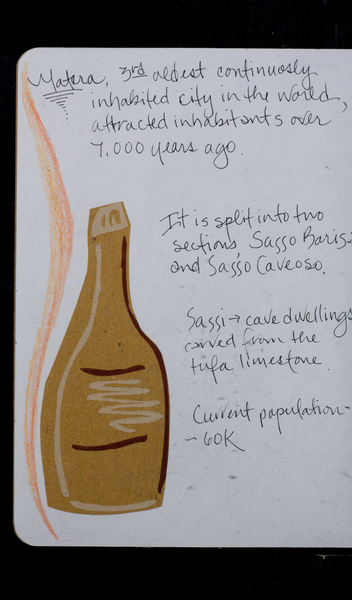 Matera, 3rd oldest continuosly
inhabited city in the world,
attracted inhabitants over
7,000 years ago.
It is split into two
sections, Sasso Baris
and Sasso Caveoso.
Sassi → cave dwellings
carved from the
tufa limestone.
Current population -
- 60K